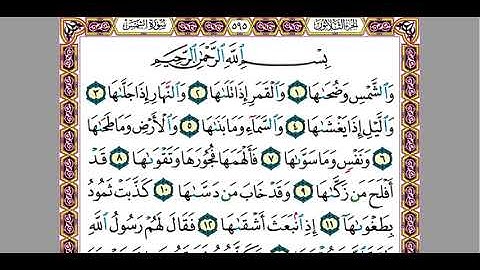 الجزء الثلاثون ٥٩٥ سورة الشمس
بِسْمِ ٱللَّهِ ٱلرَّحْمَٰنِ ٱلرَّحِيمِ
وَٱلشَّمْسِ وَضُحَىٰهَا ١ وَٱلْقَمَرِ إِذَا تَلَىٰهَا ٢ وَٱلنَّهَارِ إِذَا جَلَّىٰهَا ٣
وَٱلَّيْلِ إِذَا يَغْشَىٰهَا ٤ وَٱلسَّمَآءِ وَمَا بَنَىٰهَا ٥ وَٱلْأَرْضِ وَمَا طَحَىٰهَا
٦ وَنَفْسٍ وَمَا سَوَّىٰهَا ٧ فَأَلْهَمَهَا فُجُورَهَا وَتَقْوَىٰهَا ٨ قَدْ
أَفْلَحَ مَن زَكَّىٰهَا ٩ وَقَدْ خَابَ مَن دَسَّىٰهَا ١٠ كَذَّبَتْ ثَمُودُ
بِطَغْوَىٰهَآ ١١ إِذِ ٱنۢبَعَثَ أَشْقَىٰهَا ١٢ فَقَالَ لَهُمْ رَسُولُ ٱللَّهِ